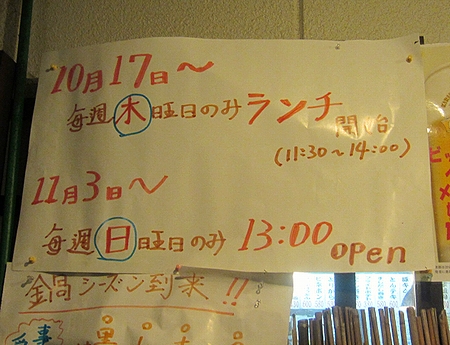 10月17日〜
毎週木曜日のみランチ
開始
(11:30〜14:00)
11月3日〜
毎週日曜日のみ 13:00 open
鍋シーズン到来!!